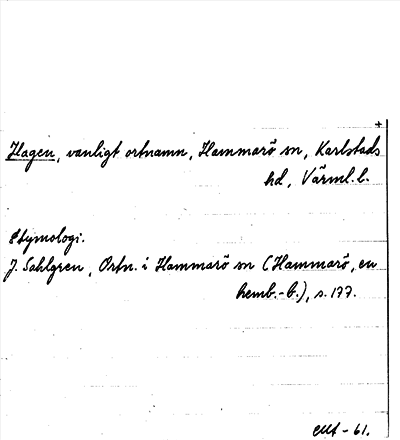 +
Hagen, vanligt ortnamn, Hammarö sn, Karlstads
hd, Värml. l.
Etymologi.
J. Sahlgren, Ortn. i Hammarö sn (Hammarö, en
hemb.-b.), s. 177.
-61.